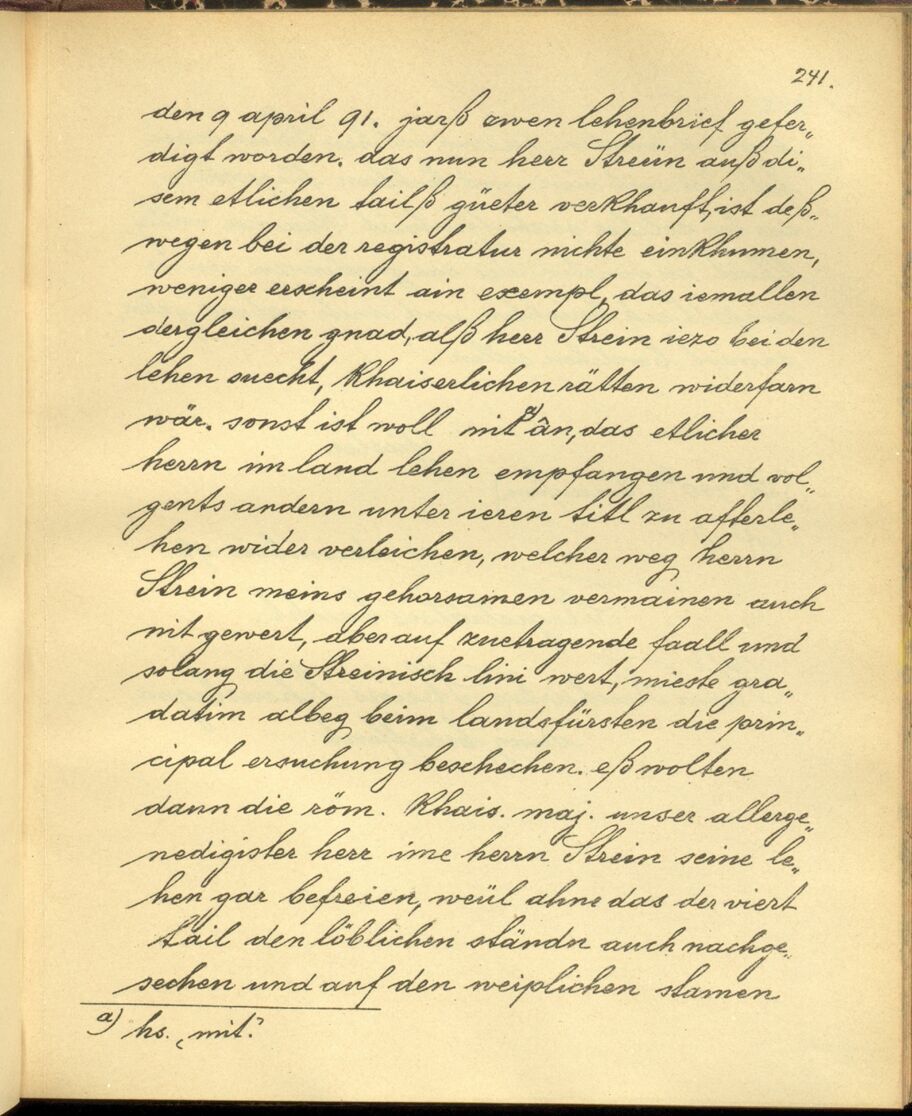 241.
den 9 april 91. jarß zwen lehenbrief gefer„
digt worden. das nun herr Streün auß di„
sem etlichen tailß güeter verkhauft, ist deß„
wegen bei der registratur nichte einkhumen,
weniger erscheint ain exempl, das iemallen
dergleichen gnad, alß herr Strein iezo bei den
lehen suecht, khaiserlichen rätten widerfarn
wär. sonst ist woll nit a) ân, das etlicher
herrn im land lehen empfangen und vol„
gents andern unter ieren titl zu afterle„
hen wider verleichen, welcher weg herrn
Strein meins gehorsamen vermainen auch
nit gewert, aber auf zuetragende faall und
solang die Streinisch lini wert, mieste gra„
datim albeg beim landsfürsten die prin„
cipal ersuchung beschechen. eß wolten
dann die röm. khais. maj. unser allerge„
nedigister herr ime herrn Strein seine le„
hen gar befreien, weül ahne das der viert
tail den löblichen ständn auch nachge„
sechen und auf den weiplichen stamen
a) hs. „mit“.